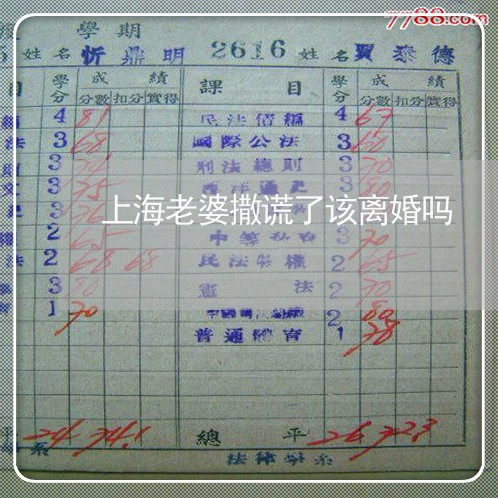 7788.com
學期
姓名 忻鼎明 2616 姓名 賈泰德
目 學分 成績 課目 學分 成績
分數 扣分 實得 分數 扣分 實得
4 81 民法債編 4 67
法 3 68 國際公法 3 60
3 刑法總則 3 70
文 3 75 西洋通史 3 80
3
上海老婆撒谎了该离婚吗
2 65 3 70
法 2 68 68 民法物權 2 65
3 80 憲法 2 70
1 70 2 80
普通體育 1 78
平 24 74.1 總平 26 72.3
系 法律學系